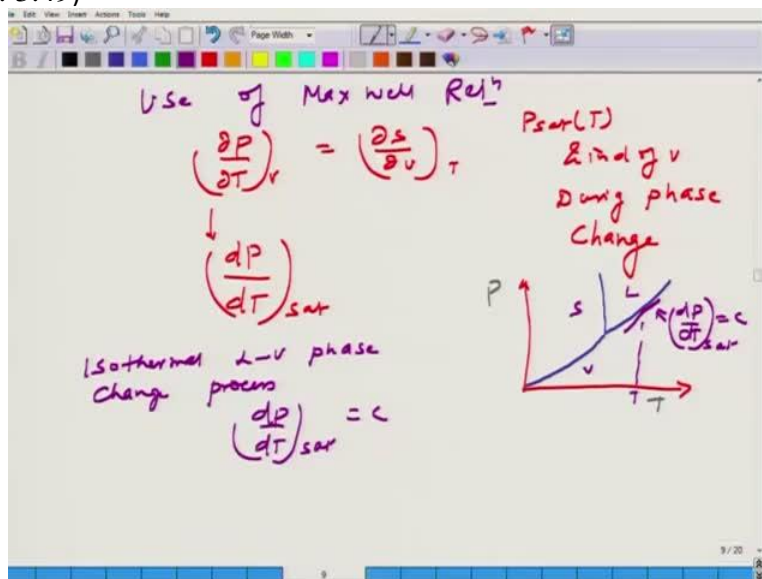 File Edit View Insert Actions Tools Help
Page Width
Use of Maxwell Relⁿ
(∂P/∂T)v = (∂s/∂v)T
↓
(dP/dT)sat
Isothermal L-V phase
change process
(dP/dT)sat = c
Psat(T)
& ind of v
During phase
Change
P
S
L
V
(dP/dT)sat = c
T
T
9/20
9